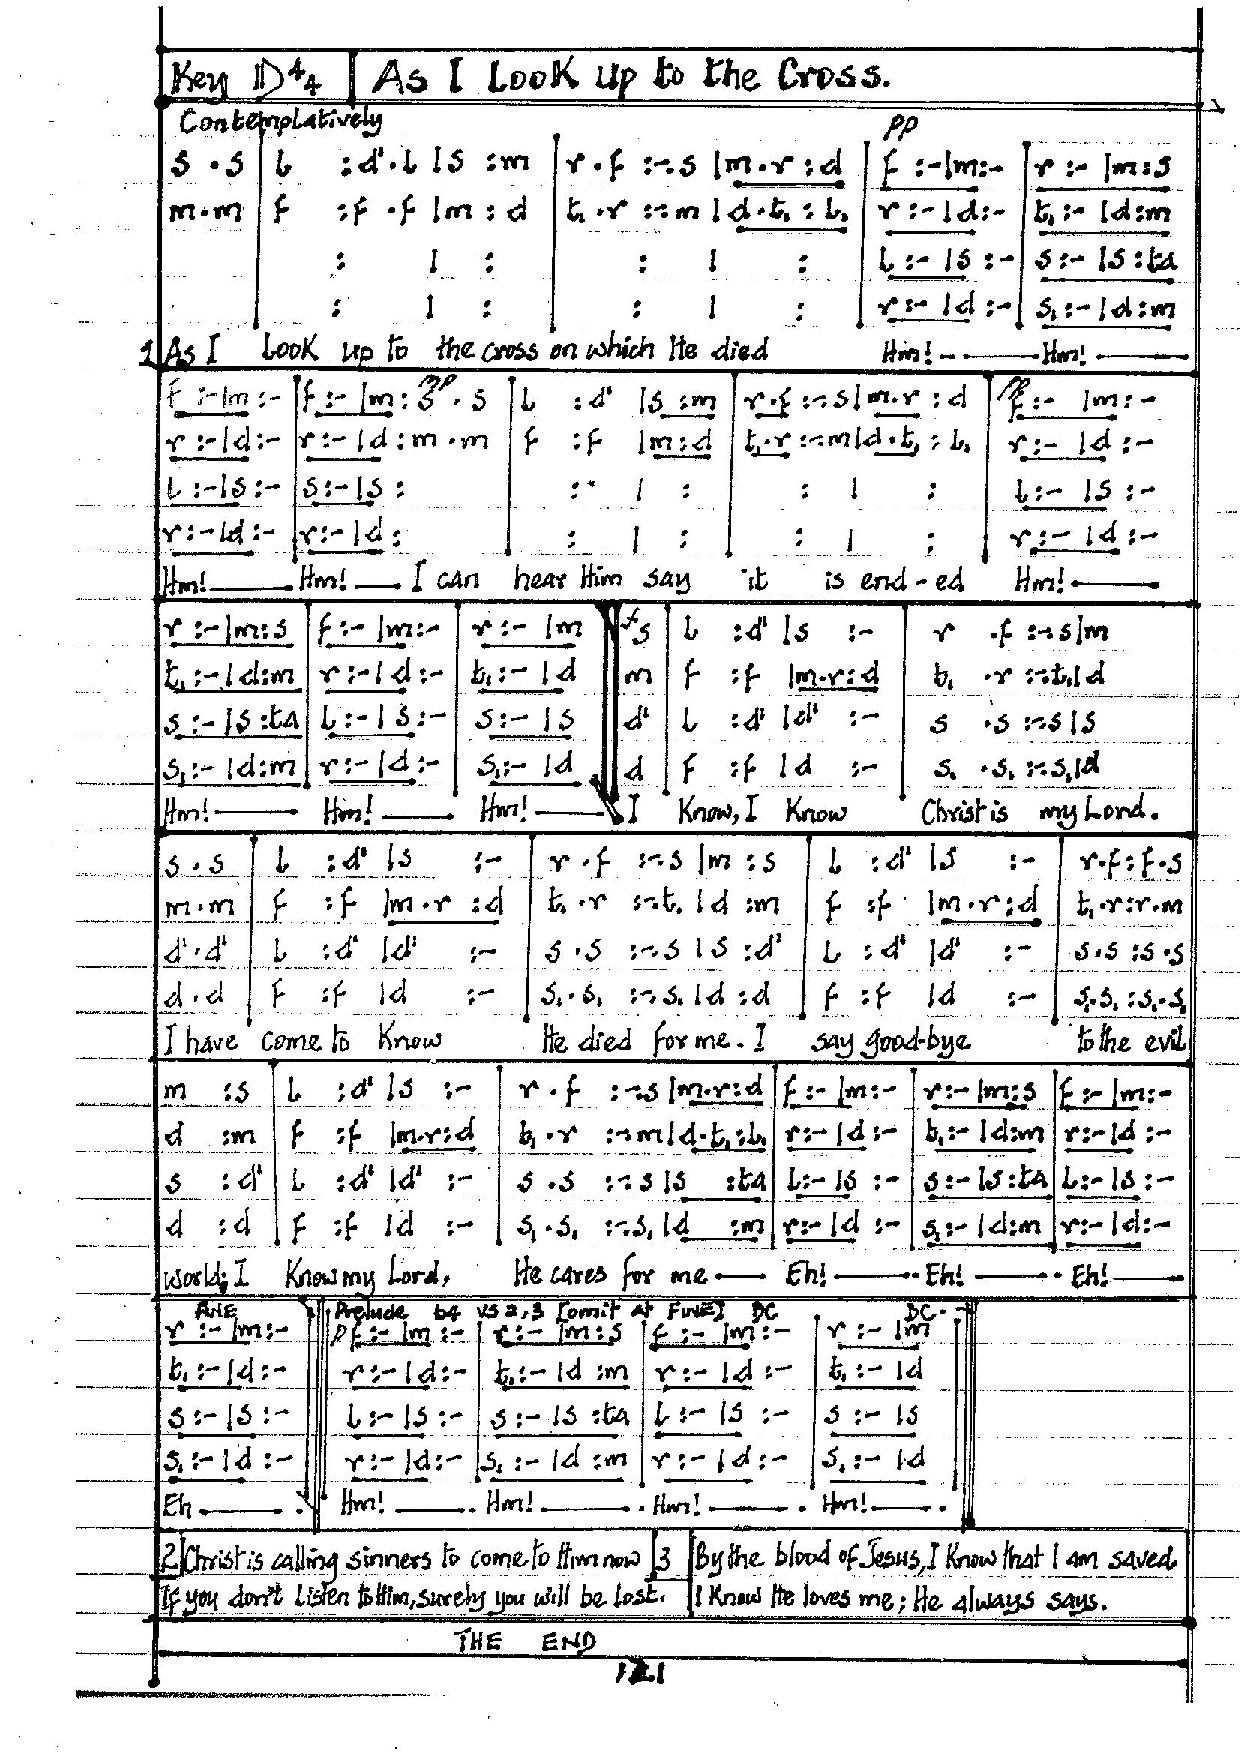 Key D 4/4 | As I Look up to the Cross.
Contemplatively
pp
s .s | L :d'.L |s :m | r.f :-.s |m.r :d | f :-|m:- | r :- |m:s
m.m | f :f .f |m :d | t₁.r :-.m |d.t₁ :L₁ | r :-|d:- | t₁:- |d:m
: | : | : | : | L:-|s:- | s:-|s:ta
: | : | : | : | r:-|d:- | s₁:-|d:m
1 As I Look up to the cross on which He died Hm! - —— Hm! ——
pp pp
f :-|m:- | f:-|m:s.s | L :d' |s:m | r.f:-.s|m.r:d | f:- |m:-
r:-|d:- | r:-|d:m.m | f :f |m:d | t₁.r:-.m|d.t₁:L₁ | r:- |d:-
L:-|s:- | s:-|s: | : | : | : | : | L:- |s:-
r:-|d:- | r:-|d: | : | : | : | : | r:-|d:-
Hm! —— Hm! —— I can hear Him say it is end-ed Hm! ——
r:-|m:s | f:-|m:- | r:- |m || f s | L :d' |s :- | r .f :-.s|m
t₁:-|d:m | r:-|d:- | t₁:-|d || m | f :f |m.r:d | t₁ .r :-.t₁|d
s:-|s:ta | L:-|s:- | s:-|s || d' | L :d' |d' :- | s .s :-.s|s
s₁:-|d:m | r:-|d:- | s₁:-|d || d | f :f |d :- | s₁ .s₁ :-.s₁|d
Hm! —— Hm! —— Hm! —— I Know, I Know Christ is my Lord.
s.s | L :d' |s :- | r.f :-.s |m :s | L :d' |s :- | r.f:f.s
m.m | f :f |m.r :d | t₁.r :-.t₁ |d :m | f :f |m.r:d | t₁.r:r.m
d'.d' | L :d' |d' :- | s.s :-.s |s :d' | L :d' |d' :- | s.s:s.s
d.d | f :f |d :- | s₁.s₁ :-.s₁ |d :d | f :f |d :- | s₁.s₁:s₁.s₁
I have come to Know He died for me. I say good-bye to the evil
m :s | L :d' |s :- | r.f :-.s |m.r:d | f:-|m:- | r:-|m:s | f:-|m:-
d :m | f :f |m.r:d | t₁.r :-.m |d.t₁:L₁ | r:-|d:- | t₁:-|d:m | r:-|d:-
s :d' | L :d' |d' :- | s.s :-.s |s :ta | L:-|s:- | s:-|s:ta | L:-|s:-
d :d | f :f |d :- | s₁.s₁ :-.s₁ |d :m | r:-|d:- | s₁:-|d:m | r:-|d:-
world; I Know my Lord, He cares for me —— Eh! —— Eh! —— Eh! ——
FINE Prelude b4 vs 2,3 [omit at FINE] DC DC.
r:-|m:- || p f:-|m:- | r:-|m:s | f:-|m:- | r:-|m
t₁:-|d:- || r:-|d:- | t₁:-|d:m | r:-|d:- | t₁:-|d
s:-|s:- || L:-|s:- | s:-|s:ta | L:-|s:- | s:-|s
s₁:-|d:- || r:-|d:- | s₁:-|d:m | r:-|d:- | s₁:-|d
Eh —— . Hm! —— . Hm! —— . Hm! —— . Hm! —— .
2 Christ is calling sinners to come to Him now
If you don't Listen to Him, surely you will be lost.
3 By the blood of Jesus, I Know that I am saved
I Know He loves me; He always says.
THE END
121